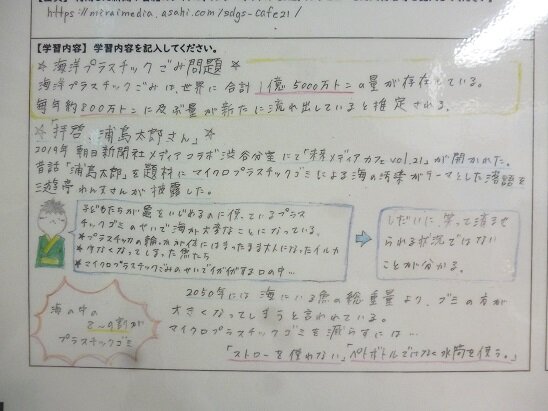 https://miraimedia.asahi.com/sdgs-cafe21/
【学習内容】学習内容を記入してください。
☆海洋プラスチックごみ問題☆
海洋プラスチックごみは、世界に合計1億5000万トンの量が存在している。
毎年約800万トンに及ぶ量が新たに流れ出していると推定される。
☆「拝啓、浦島太郎さん」☆
2019年 朝日新聞社メディアコラボ渋谷分室にて「未来メディアカフェvol.21」が開かれた。
昔話「浦島太郎」を題材にマイクロプラスチックゴミによる海の汚染がテーマとした落語を
三遊亭れん生さんが披露した。
子どもたちが亀をいじめるのに使っているプラス
チックゴミのせいで海が大変なことになっている。
*プラスチックの輪っかが体にはまったまま大人になったイルカ
*少なくなってしまった魚たち
*マイクロプラスチックごみのせいでイガイガする口の中…
しだいに、笑って済ませ
られる状況ではない
ことが分かる。
海の中の
2〜9割が
プラスチックゴミ
2050年には海にいる魚の総重量より、ゴミの方が
大きくなってしまうと言われている。
マイクロプラスチックゴミを減らすには…
「ストローを使わない」「ペットボトルではなく水筒を使う。」